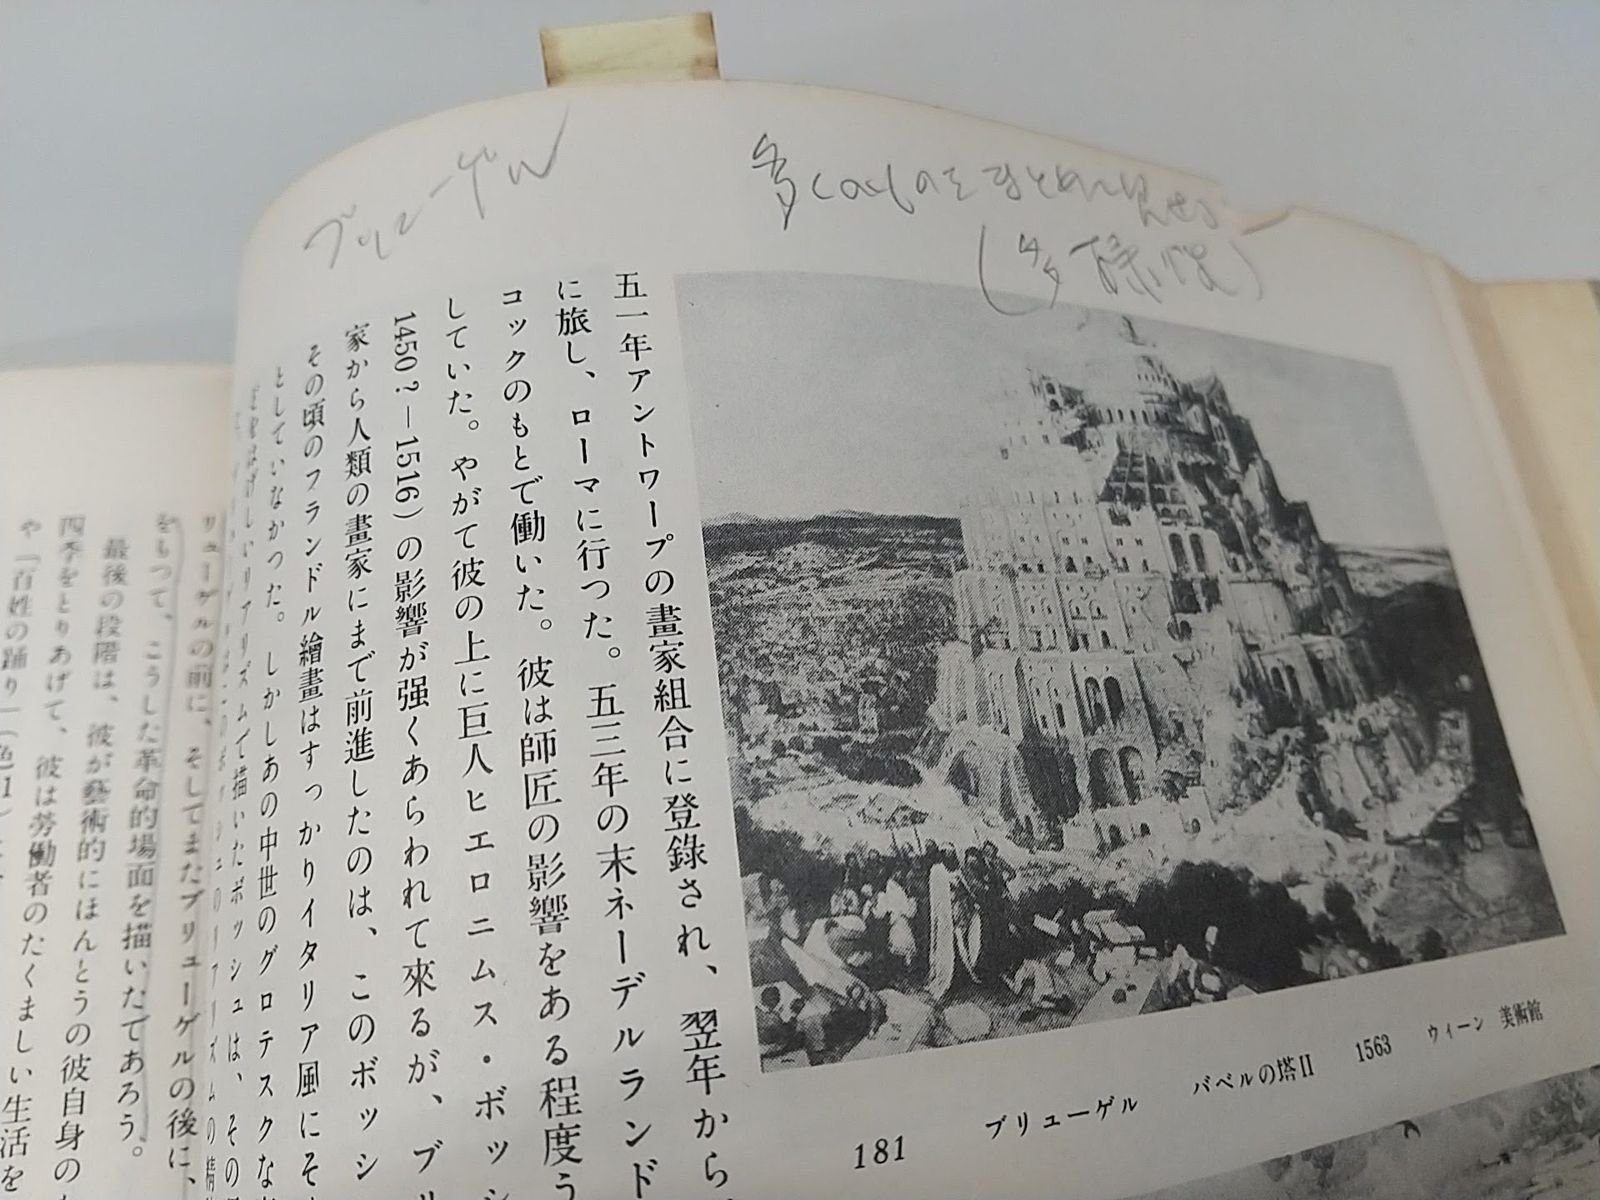 ブリューゲル
(多様性)
五一年アントワープの畫家組合に登錄され、翌年から
に旅し、ローマに行つた。五三年の末ネーデルランド
コックのもとで働いた。彼は師匠の影響をある程度う
していた。やがて彼の上に巨人ヒエロニムス・ボッシ
1450？―1516）の影響が强くあらわれて來るが、ブリ
家から人類の畫家にまで前進したのは、このボッシ
その頃のフランドル繪畫はすっかりイタリア風にそ
としていなかつた。しかしあの中世のグロテスクな
はげしいリアリズムで描いたボッシュは、その
ブリューゲル バベルの塔II 1563 ウィーン 美術館
181
リューゲルの前に、そしてまたブリューゲルの後に、
をもつて、こうした革命的場面を描いたであろう。
最後の段階は、彼が藝術的にほんとうの彼自身の
四季をとりあげて、彼は勞働者のたくましい生活を
や「百姓の踊り」(色1)